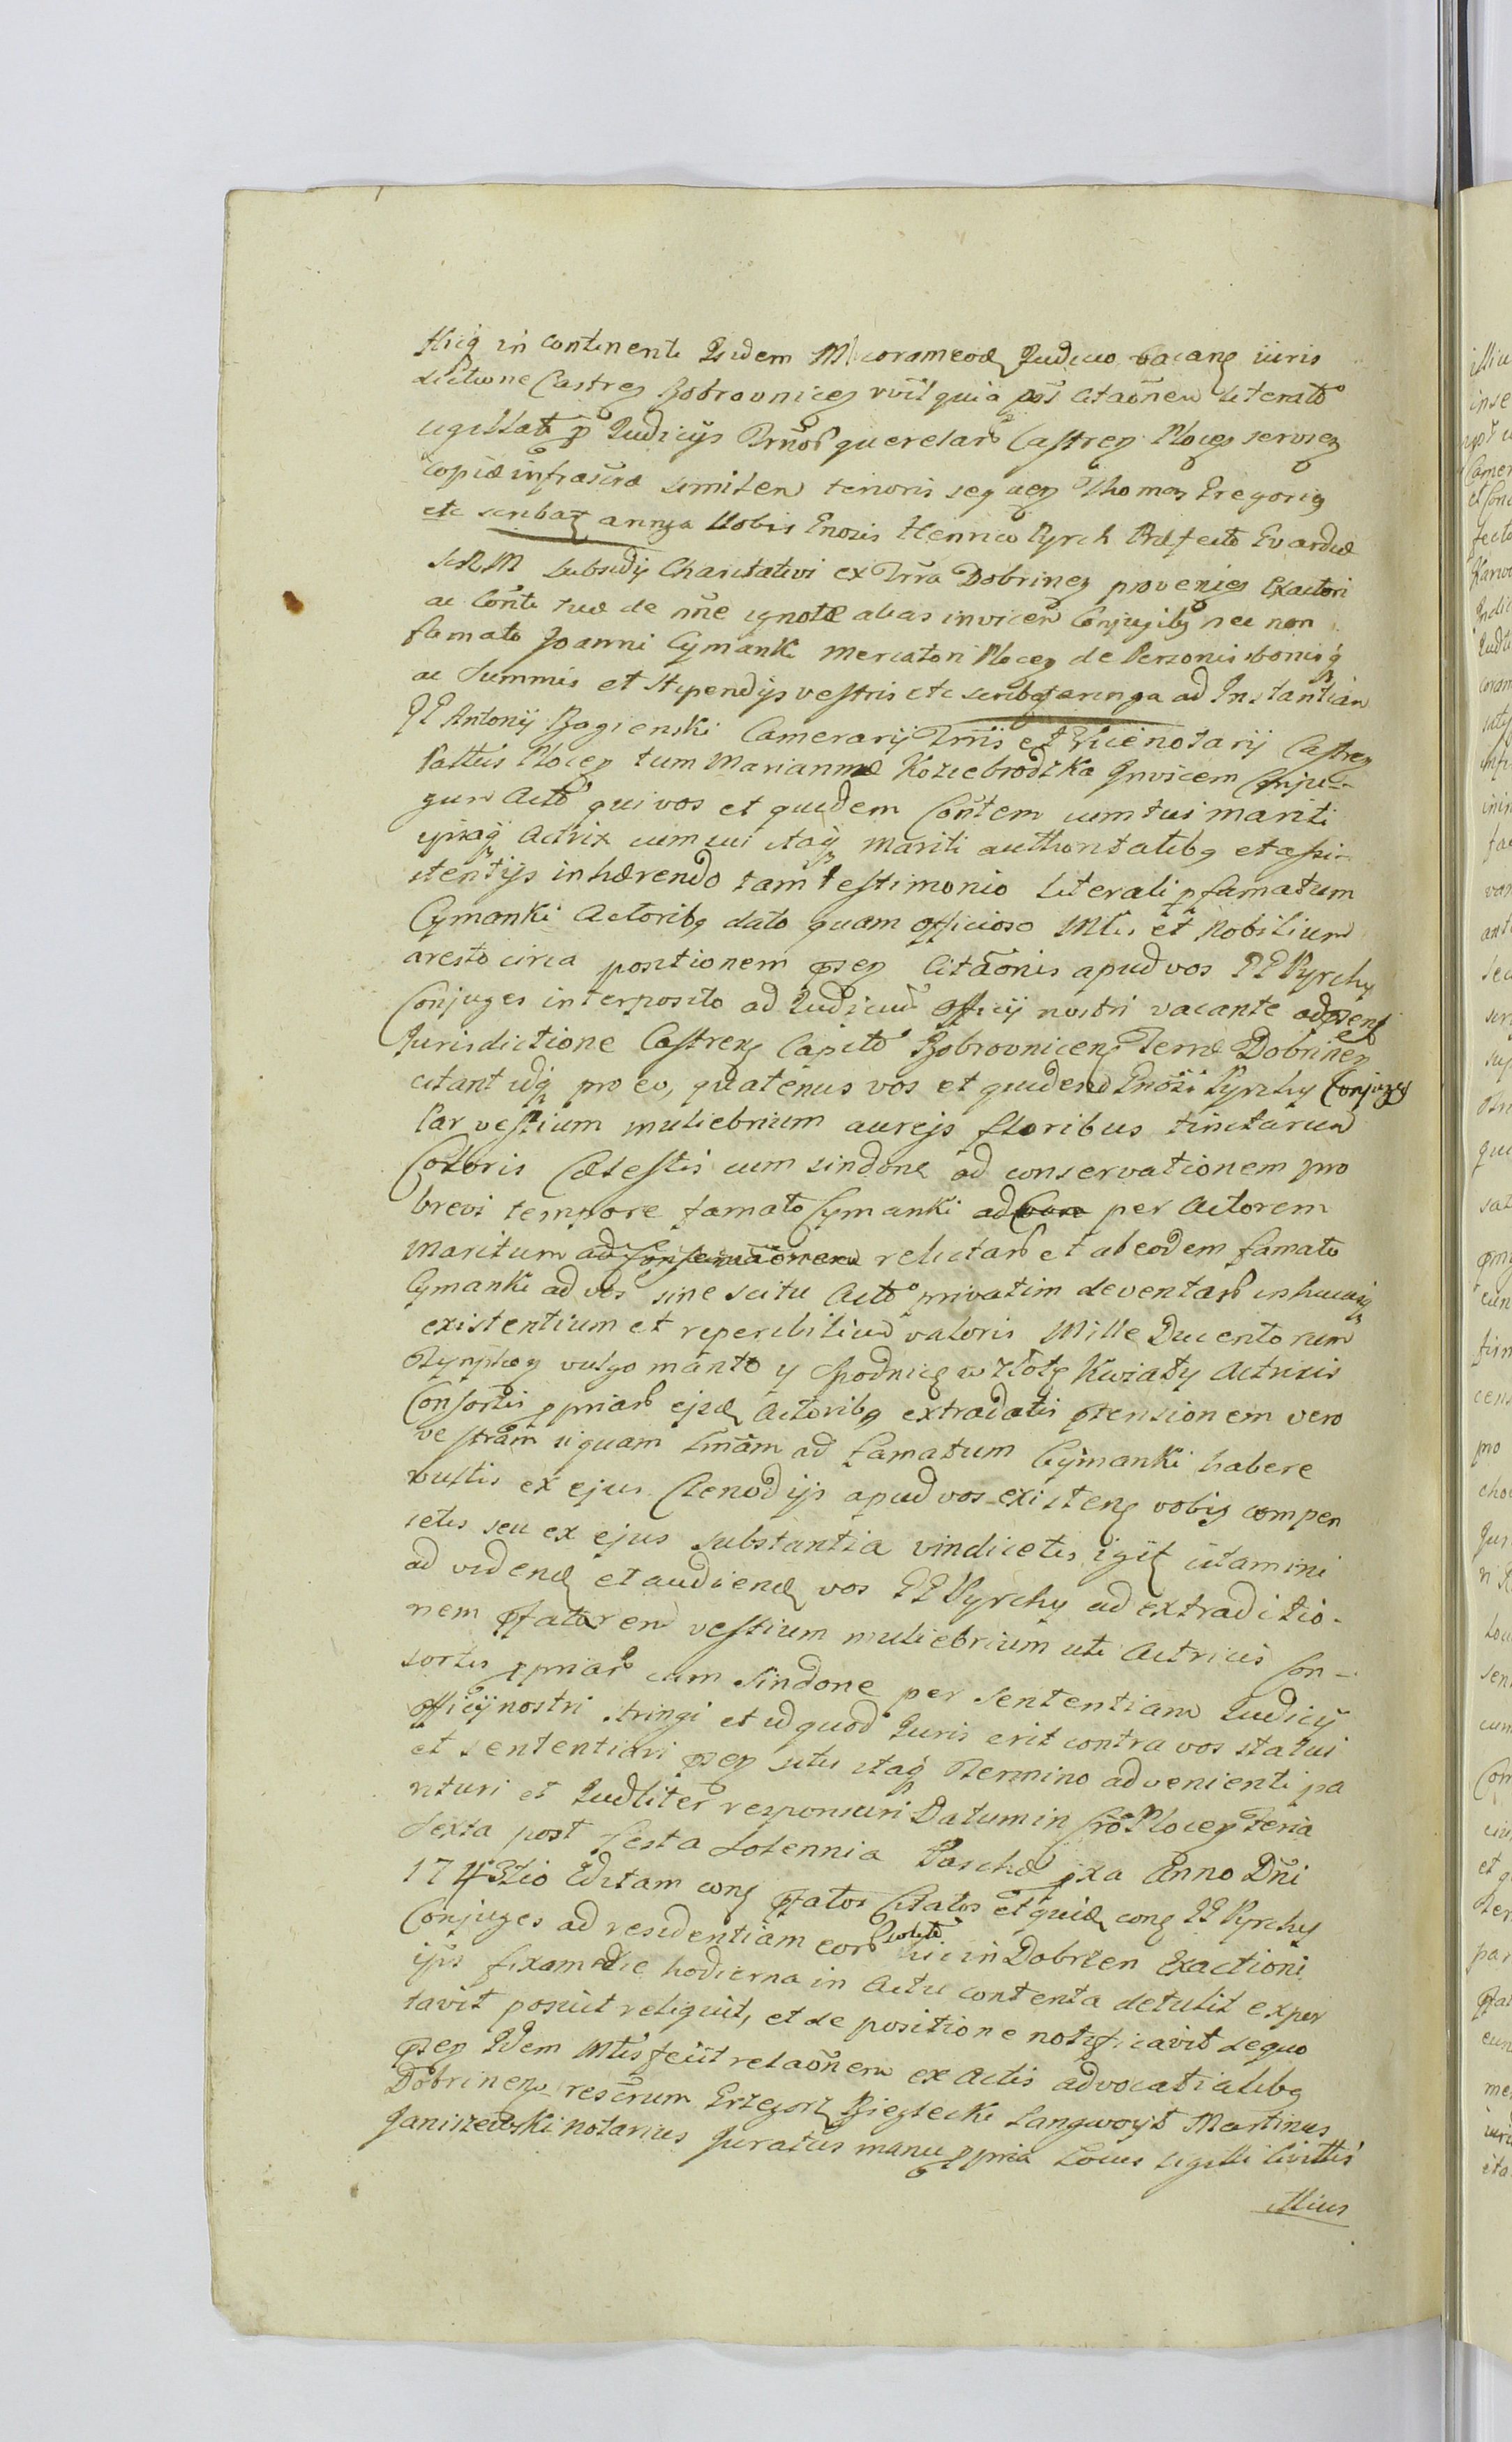 in continenti Idem coram eod Judicio vacan iuris
dictione Castren Bobrovnicen quia citaõnem literato
sigillat Judicijs querelar Castren Plocen servien
copiæ infrascræ similem tenoris seq Thomas Gregorig
etc scribatz Vobis Gnosis Henrico Pyrch Præfecto
SRM Subsidij Charitativi ex Trra Dobrinen provenien Exactori
ac Conti tuæ de nñe ignotæ alias invicem Conjugibg nec non
famato Joanni Cymanki Mercatori Plocen de Personis bonisq
ac Summis et Stipendijs vestris etc scribatz ad Instantiam
PP Antonij Bogienski Camerarij Trrris et Vicenotarij Castren
Plocen tum Mariannæ Koziebrodzka Invicem Conju-
gum Acto qui vos et quidem Contem cum tui mariti
ipsaq Actrix cum sui itaq mariti authoritatibg et assi-
stentijs inhærendo tam testimonio literali p famatum
Cymanki Actoribg dato quam officioso Mtis et Nobilium
aresto circa positionem psen Citãonis apud vos PP Pyrchy
Conjuges interposito ad Judicium Officij nostri vacante ad psens
Jurisdictione Castren Capito Bobrovnicen Terræ Dobrinen
citant idq pro eo, quatenus vos et quidem Gnosi Pyrchy Conjuges
Par vestium muliebrium aureis floribus tinctarum
Coloris Cælestis cum sindone ad conservationem pro
brevi tempore famato Cymanki ad per Actorem
Maritum ad Conservãonem relictar et ab eodem famato
Cymanki ad vos sine scitu Acto privatim deventar inhucusq
existentium et reperibilium valoris Mille Ducentorum
Tynphon vulgo manto y spodnicę w złotę Kwiaty Actricis
Consortis ppriar ejsd Actoribg extradatis ptensionem vero
vestram siquam ad famatum Cymanki habere
vultis ex ejus Clenodijs apud vos existen vobis compen
setis seu ex ejus substantia vindicetis, igit citamini
ad vidend et audiend vos PP Pyrchy ad extraditio-
nem pfatar vestium muliebrium uti Actricis Con-
sortis ppriar cum Sindone per sententiam Judicij
officij nostri stringi et idquod Juris erit contra vos statui
et sententiari psen sitis itaq Termino advenienti pa
rituri et Judliter responsuri Datum in Plocen Feria
Sexta post Festa Solennia Paschæ pxa Anno Dñi
1743tio Editam con pfatos Citatos et quid con PP Pyrchy
Conjuges ad residentiam eor hic in Dobrzen Exactioni
fixam die hodierna in Actu contenta detulit expor
tavit posuit reliquit, et de positione notificavit de quo
psen Idem Mtis fecit relaõnem ex Actis advocatialibg
Dobrinen rescrum Grzegorz Bieglecki Langwoyt Martinus
Janiszewski notarius Juratus manu ppria Locus sigilli Civittis
illius